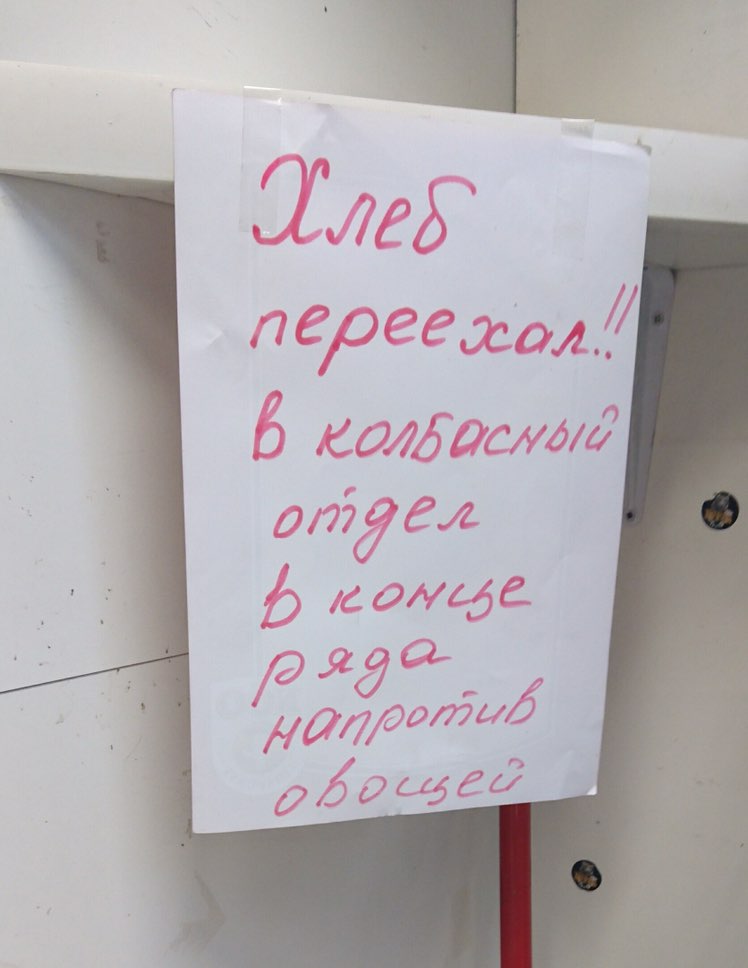 Хлеб
переехал!!
в колбасный
отдел
в конце
ряда
напротив
овощей